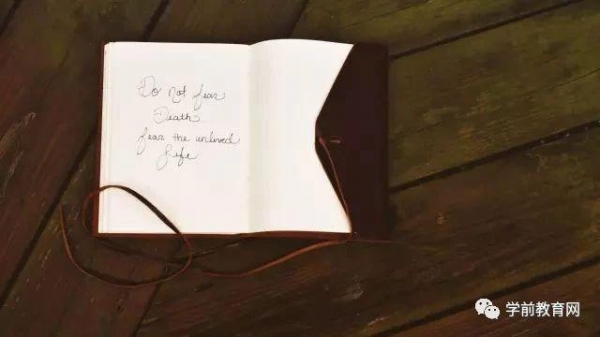 Do not fear
Death
fear the unlived
Life
学前教育网